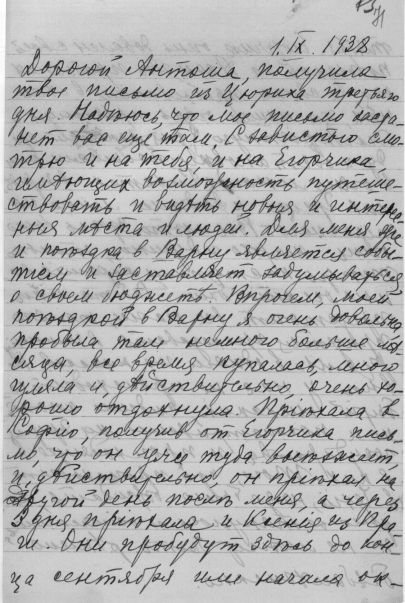 1.IX.1938
Дорогой Антоша, получила
твое письмо из Цюриха третьяго
дня. Надѣюсь что мое письмо заста-
нет вас еще там. С завистью смо-
трю и на тебя, и на Егорчика,
имѣющих возможность путеше-
ствовать и видѣть новыя и интерес-
ныя мѣста и людей. Для меня
и поѣздка в Варну является собы-
тием и заставляет задумываться
о своем бюджетѣ. Впрочем, моей
поѣздкой в Варну я очень довольна,
пробыла там немного больше мѣ-
сяца, все время купалась, много
гуляла и, дѣйствительно, очень хо-
рошо отдохнула. Пріѣхала в
Софію, получив от Егорчика пись-
мо, что он туда выѣзжает,
и, дѣйствительно, он пріѣхал на
другой день послѣ меня, а через
3 дня пріѣхала и Ксенія из Пра-
ги. Они пробудут здѣсь до кон-
ца сентября или начала ок-